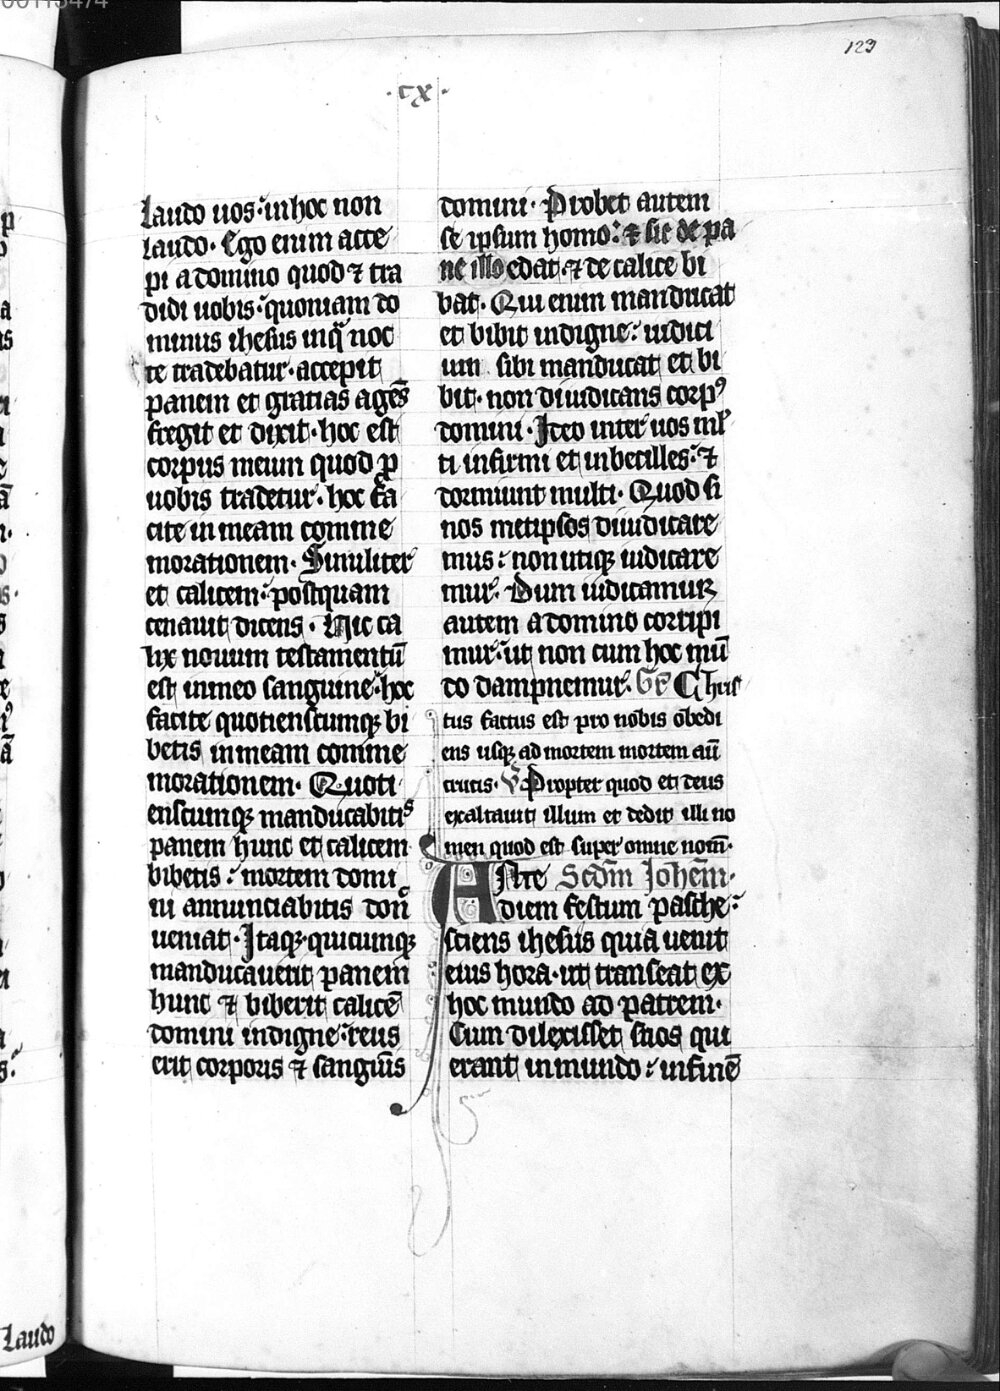 123
·cx·
laudo uos ⁊ in hoc non
laudo · Ego enim acce
pi a domino quod ⁊ tra
didi uobis ⁊ quoniam do
minus ihesus in q̄ noc
te tradebatur · accepit
panem et gratias agēs
fregit et dixit · hoc est
corpus meum quod ꝓ
uobis tradetur · hoc fa
cite in meam comme
morationem · Similiter
et calicem ⁊ postquam
cenauit dicens · Hic ca
lix nouum testamentū
est in meo sanguine ⁊ hoc
facite quotienscumqꝫ bi
betis in meam comme
morationem · Quoti
enscumqꝫ manducabitis
panem hunc et calicem
bibetis ⁊ mortem domi
ni annunciabitis donͨ
ueniat · Itaqꝫ quicumqꝫ
manducauerit panem
hunc ⁊ biberit calicē
domini indigne ⁊ reus
erit corporis ⁊ sanguīs
domini · Probet autem
se ipsum homo ⁊ ⁊ sic de pa
ne illo edat · ⁊ de calice bi
bat · Qui enim manducat
et bibit indigne ⁊ iudici
um sibi manducat et bi
bit · non diiudicans corpꝰ
domini · Ideo inter uos ml̓
ti infirmi et inbecilles ⁊ ⁊
dormiunt multi · Quod si
nos metipsos diiudicare
mus ⁊ non utiqꝫ iudicare
mur · Dum iudicamur
autem a domino corripi
mur ⁊ ut non cum hoc mū
do dampnemur · Gr̄ Chris
tus factus est pro nobis obedi
ens usqꝫ ad mortem mortem aū
crucis · V̄ Propter quod et deus
exaltauit illum et dedit illi no
men quod est super omne nom̄ ·
Ante Scdm̄ Johem̄ ·
diem festum pasche ⁊
sciens ihesus quia uenit
eius hora · ut transeat ex
hoc mundo ad patrem ·
Cum dilexisset suos qui
erant in mundo ⁊ in finē
Laudo